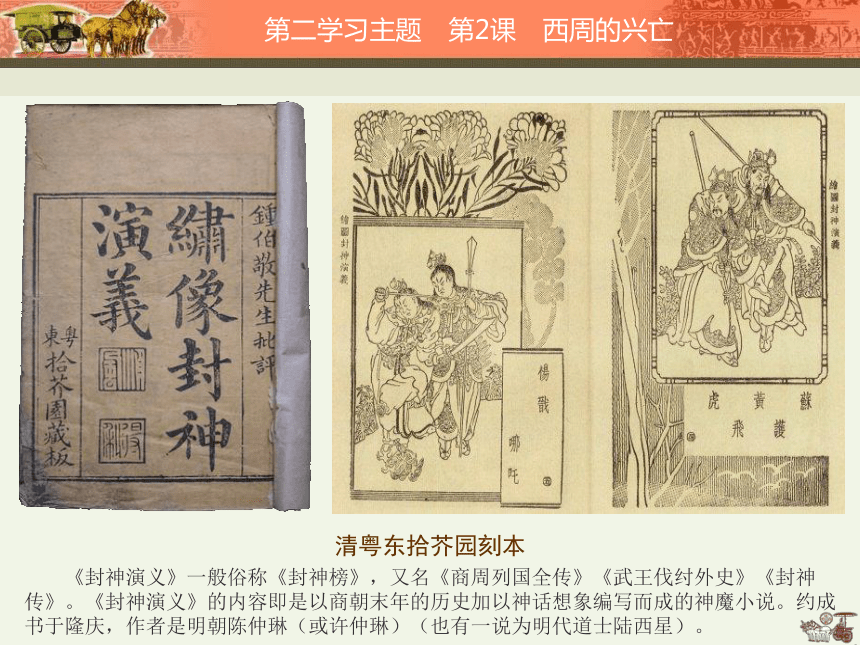 第二学习主题　第2课　西周的兴亡
鍾伯敬先生批評
繡像封神
演義
粵東
拾芥園藏板
繪圖封神演義
楊戩
哪吒
繪圖封神演義
蘇護
黃飛
虎
清粤东拾芥园刻本
《封神演义》一般俗称《封神榜》，又名《商周列国全传》《武王伐纣外史》《封神
传》。《封神演义》的内容即是以商朝末年的历史加以神话想象编写而成的神魔小说。约成
书于隆庆，作者是明朝陈仲琳（或许仲琳）（也有一说为明代道士陆西星）。